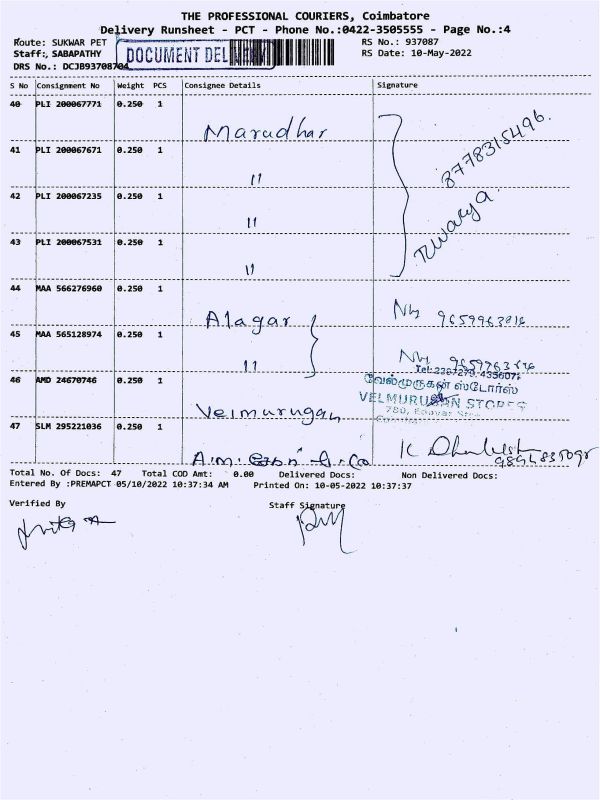 THE PROFESSIONAL COURIERS, Coimbatore
Delivery Runsheet - PCT - Phone No.:0422-3505555 - Page No.:4
Route: SUKWAR PET RS No.: 937087
Staff:, SABAPATHY DOCUMENT DEL RS Date: 10-May-2022
DRS No.: DCJB93708704
S No Consignment No Weight PCS Consignee Details Signature
40 PLI 200067771 0.250 1
Marudhar 8778315496.
41 PLI 200067671 0.250 1
"
42 PLI 200067235 0.250 1
"
43 PLI 200067531 0.250 1
"
44 MAA 566276960 0.250 1
Alagar
45 MAA 565128974 0.250 1
"
Tel:2387279, 435607
46 AMD 24670746 0.250 1 வேல்முருகன் ஸ்டோர்ஸ்
VELMURUGAN STORES
Velmurugan 780,
47 SLM 295221036 0.250 1
A.M.
Total No. Of Docs: 47 Total COD Amt: 0.00 Delivered Docs: Non Delivered Docs:
Entered By :PREMAPCT 05/10/2022 10:37:34 AM Printed On: 10-05-2022 10:37:37
Verified By Staff Signature